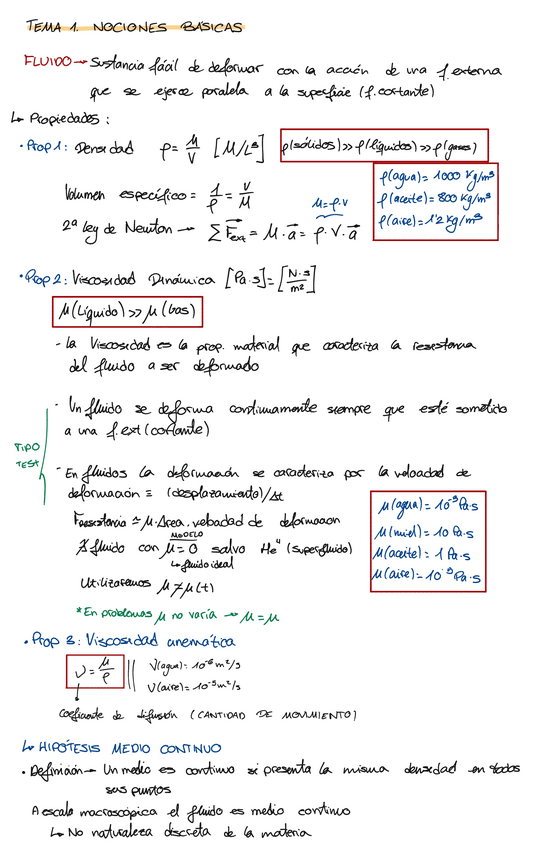 TEMA 1. NOCIONES BÁSICAS
FLUIDO → Sustancia fácil de deformar con la acción de una f. externa
que se ejerce paralela a la superficie (f. cortante)
↳ Propiedades:
· Prop 1: Densidad ρ = M/V [M/L³] ρ(sólidos) >> ρ(líquidos) >> ρ(gases)
ρ(agua) = 1000 Kg/m³
ρ(aceite) = 800 Kg/m³
ρ(aire) = 1'2 Kg/m³
Volumen específico = 1/ρ = V/M
M = ρ·V
2ª Ley de Newton → Σ Fext = M · a = ρ · V · a
· Prop 2: Viscosidad Dinámica [Pa·s] = [N·s/m²]
μ(Líquido) >> μ(Gas)
- La Viscosidad es la prop. material que caracteriza la resistencia
del fluido a ser deformado
- Un fluido se deforma continuamente siempre que esté sometido
a una f. ext (cortante)
TIPO
TEST
- En fluidos la deformación se caracteriza por la velocidad de
deformación = (desplazamiento)/Δt
Fresistencia ≈ μ · Area · velocidad de deformación
MODELO
∄ fluido con μ = 0 salvo He⁴ (superfluido)
↳ fluido ideal
Utilizaremos μ ≠ μ(t)
* En problemas μ no varía → μ = μ
μ(agua) = 10⁻³ Pa·s
μ(miel) = 10 Pa·s
μ(aceite) = 1 Pa·s
μ(aire) = 10⁻⁵ Pa·s
· Prop 3: Viscosidad cinemática
ν = μ/ρ
ν(agua) = 10⁻⁶ m²/s
ν(aire) = 10⁻⁵ m²/s
coeficiente de difusión (CANTIDAD DE MOVIMIENTO)
↳ HIPÓTESIS MEDIO CONTINUO
· Definición → Un medio es continuo si presenta la misma densidad en todos
sus puntos
A escala macroscópica el fluido es medio continuo
↳ No naturaleza discreta de la materia